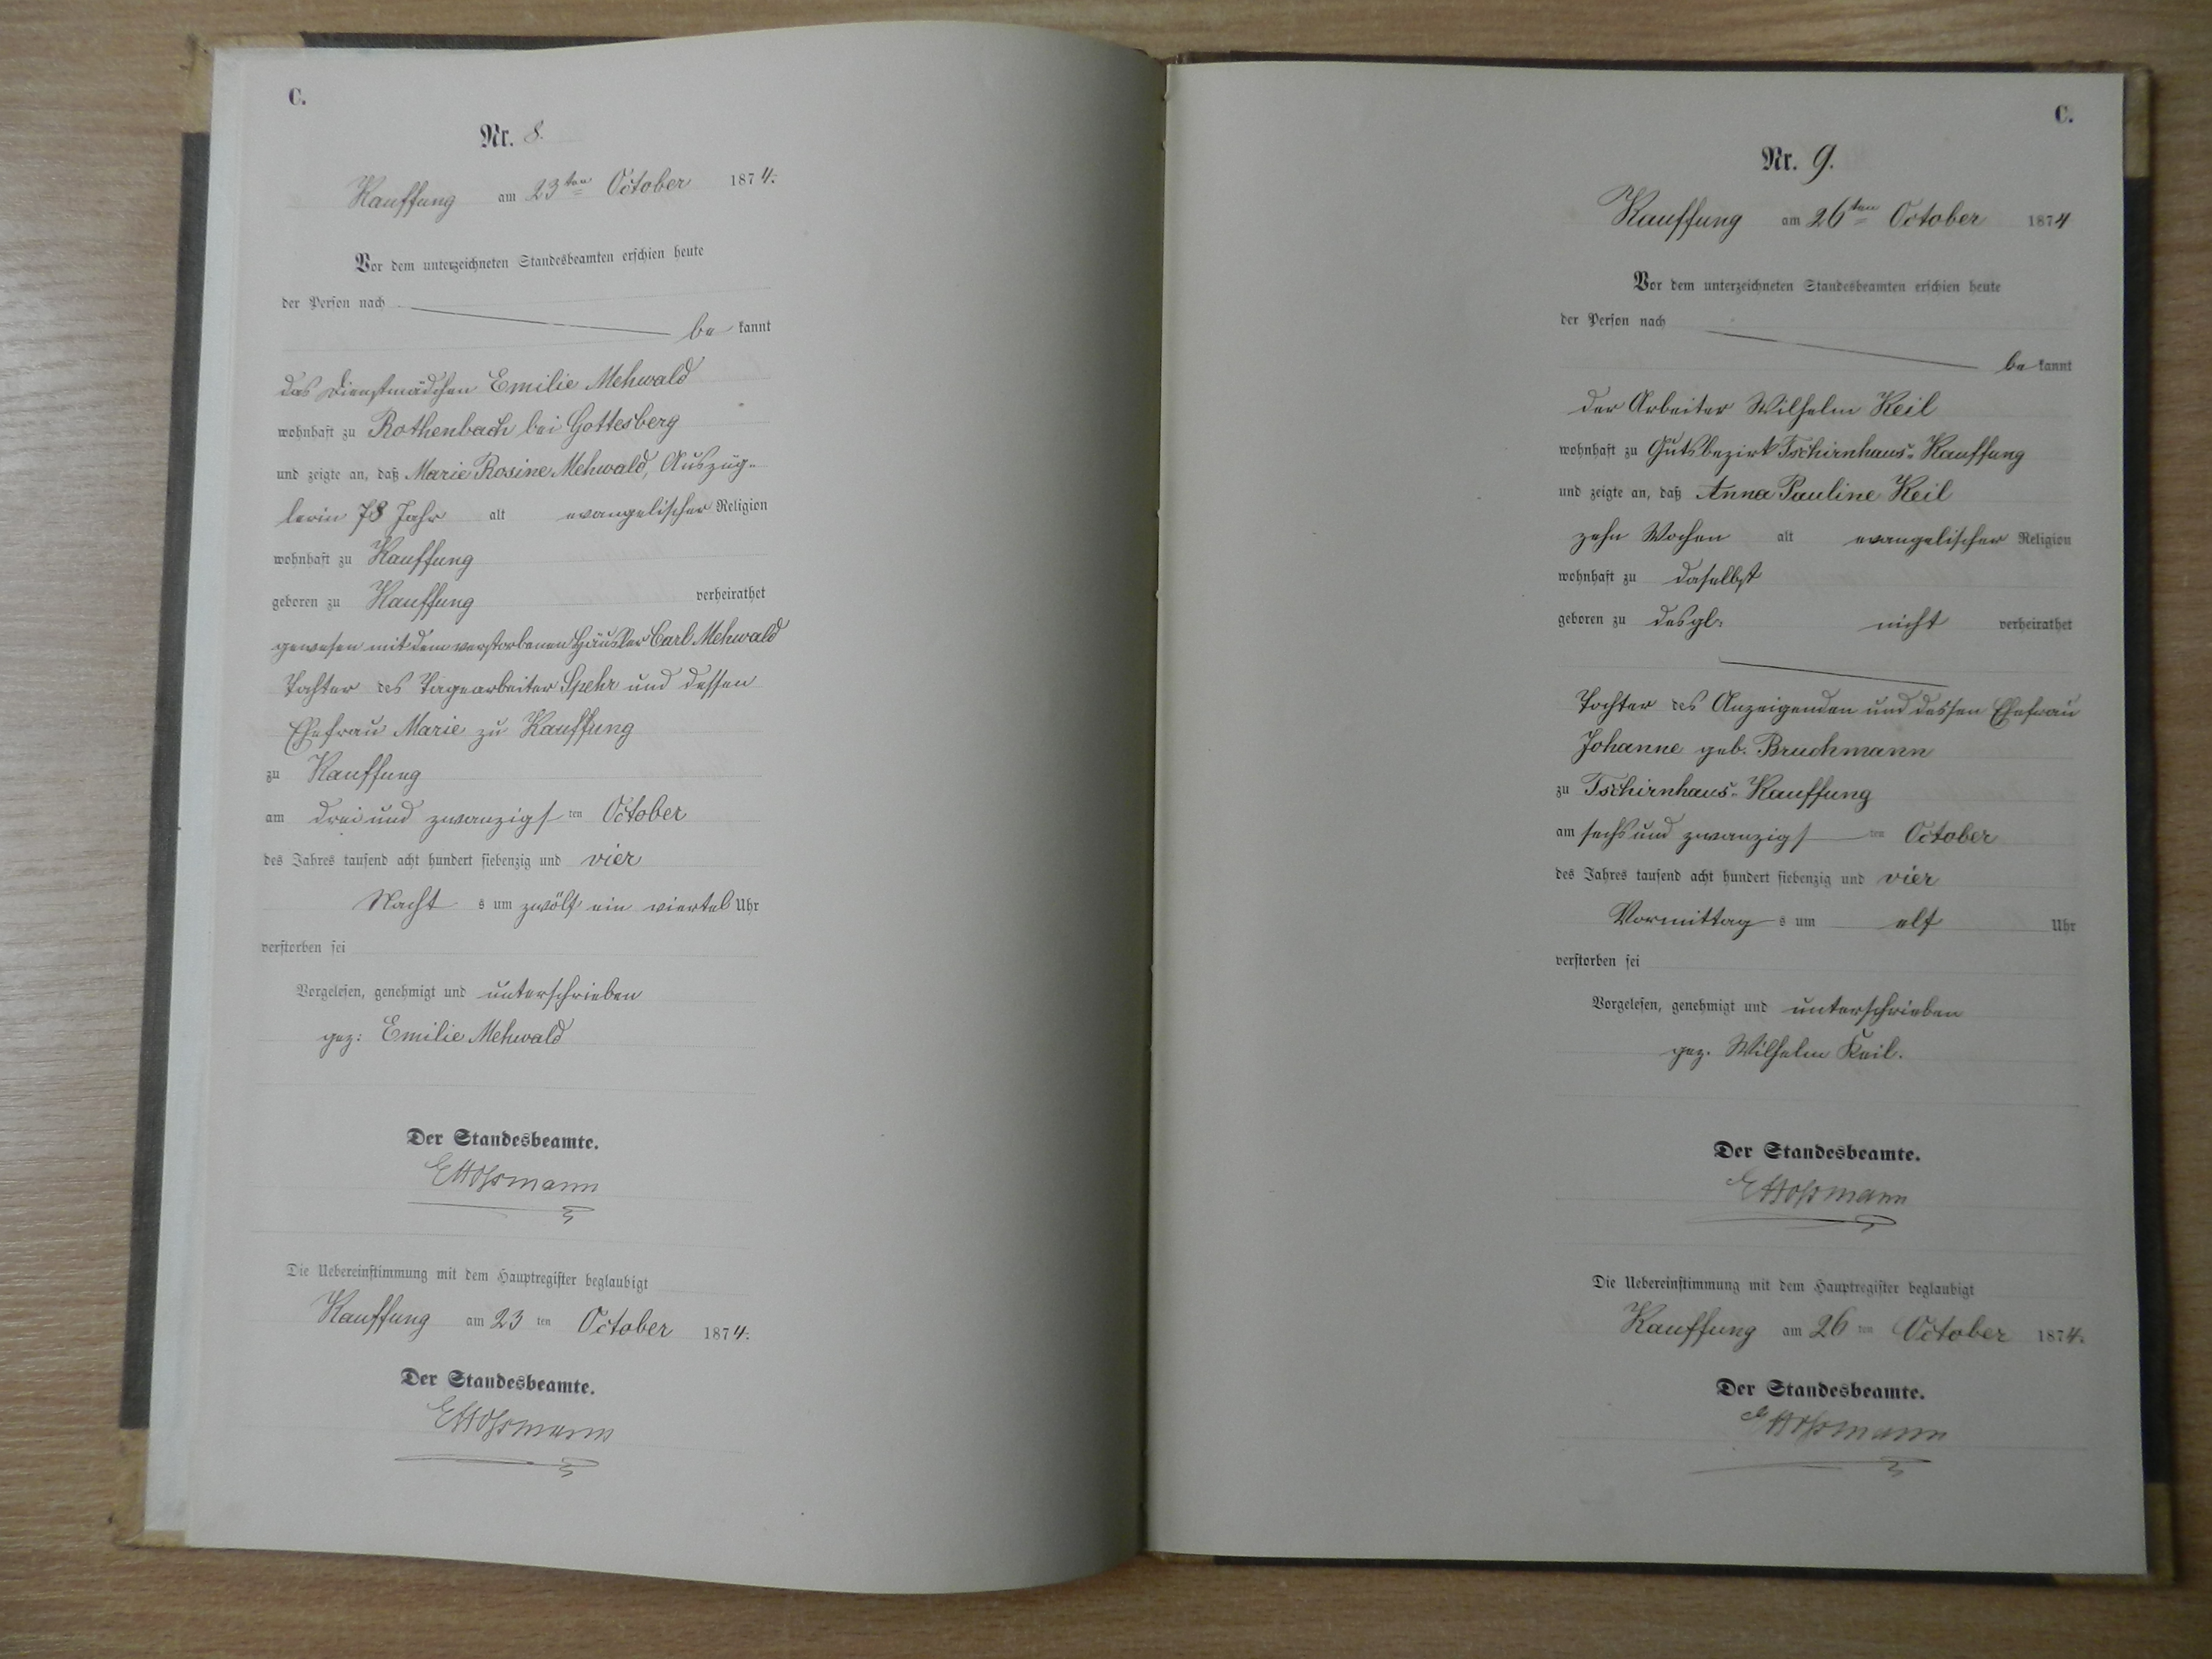 C.
Nr. 8.
Kauffung am 23ten October 1874.
Vor dem unterzeichneten Standesbeamten erschien heute
der Person nach
be kannt
das Dienstmädchen Emilie Mehwald
wohnhaft zu Rothenbach bei Gottesberg
und zeigte an, daß Marie Rosine Mehwald, Auszüg-
lerin 78 Jahr alt evangelischer Religion
wohnhaft zu Kauffung
geboren zu Kauffung verheirathet
gewesen mit dem verstorbenen Häusler Carl Mehwald
Tochter des Tagearbeiter Spehr und dessen
Ehefrau Marie zu Kauffung
zu Kauffung
am drei und zwanzigsten October
des Jahres tausend acht hundert siebenzig und vier
Nachts um zwölf ein viertel Uhr
verstorben sei
Vorgelesen, genehmigt und unterschrieben
gez: Emilie Mehwald
Der Standesbeamte.
Die Uebereinstimmung mit dem Hauptregister beglaubigt
Kauffung am 23ten October 1874.
Der Standesbeamte.
C.
Nr. 9.
Kauffung am 26ten October 1874
Vor dem unterzeichneten Standesbeamten erschien heute
der Person nach
be kannt
der Arbeiter Wilhelm Keil
wohnhaft zu Gutsbezirk Tschirnhaus-Kauffung
und zeigte an, daß Anna Pauline Keil
zehn Wochen alt evangelischer Religion
wohnhaft zu daselbst
geboren zu desgl: nicht verheirathet
Tochter des Anzeigenden und dessen Ehefrau
Johanne geb. Bruchmann
zu Tschirnhaus-Kauffung
am sechs und zwanzigsten October
des Jahres tausend acht hundert siebenzig und vier
Vormittags um elf Uhr
verstorben sei
Vorgelesen, genehmigt und unterschrieben
gez. Wilhelm Keil.
Der Standesbeamte.
Die Uebereinstimmung mit dem Hauptregister beglaubigt
Kauffung am 26ten October 1874.
Der Standesbeamte.